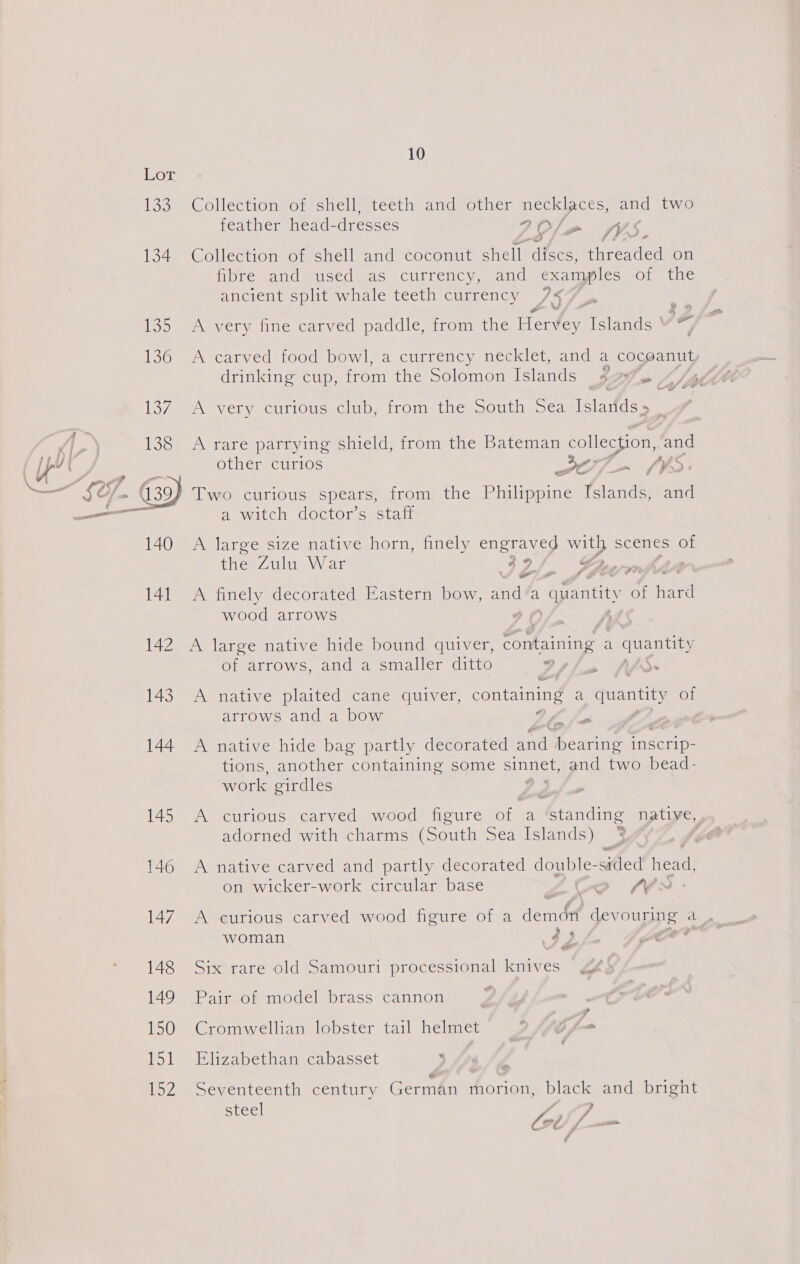 10
Lot
133 Collection of shell, teeth and other necklaces, and two
feather head-dresses 20/-
134 Collection of shell and coconut shell discs, threaded on
fibre and used as currency, and examples of the
ancient split whale teeth currency
135 A very fine carved paddle, from the Hervey Islands
136 A carved food bowl, a currency necklet, and a cocoanut
drinking cup, from the Solomon Islands
137 A very curious club, from the South Sea Islands
138 A rare parrying shield, from the Bateman collection, and
other curios
139 Two curious spears, from the Philippine Islands, and
a witch doctor's staff
140 A large size native horn, finely engraved with scenes of
the Zulu War 32/-
141 A finely decorated Eastern bow, and a quantity of hard
wood arrows
142 A large native hide bound quiver, containing a quantity
of arrows, and a smaller ditto
143 A native plaited cane quiver, containing a quantity of
arrows and a bow
144 A native hide bag partly decorated and bearing inscrip-
tions, another containing some sinnet, and two bead-
work girdles
145 A curious carved wood figure of a standing native,
adorned with charms (South Sea Islands)
146 A native carved and partly decorated double-sided head,
on wicker-work circular base
147 A curious carved wood figure of a demon devouring a
woman
148 Six rare old Samouri processional knives
149 Pair of model brass cannon
150 Cromwellian lobster tail helmet
151 Elizabethan cabasset
152 Seventeenth century German morion, black and bright
steel